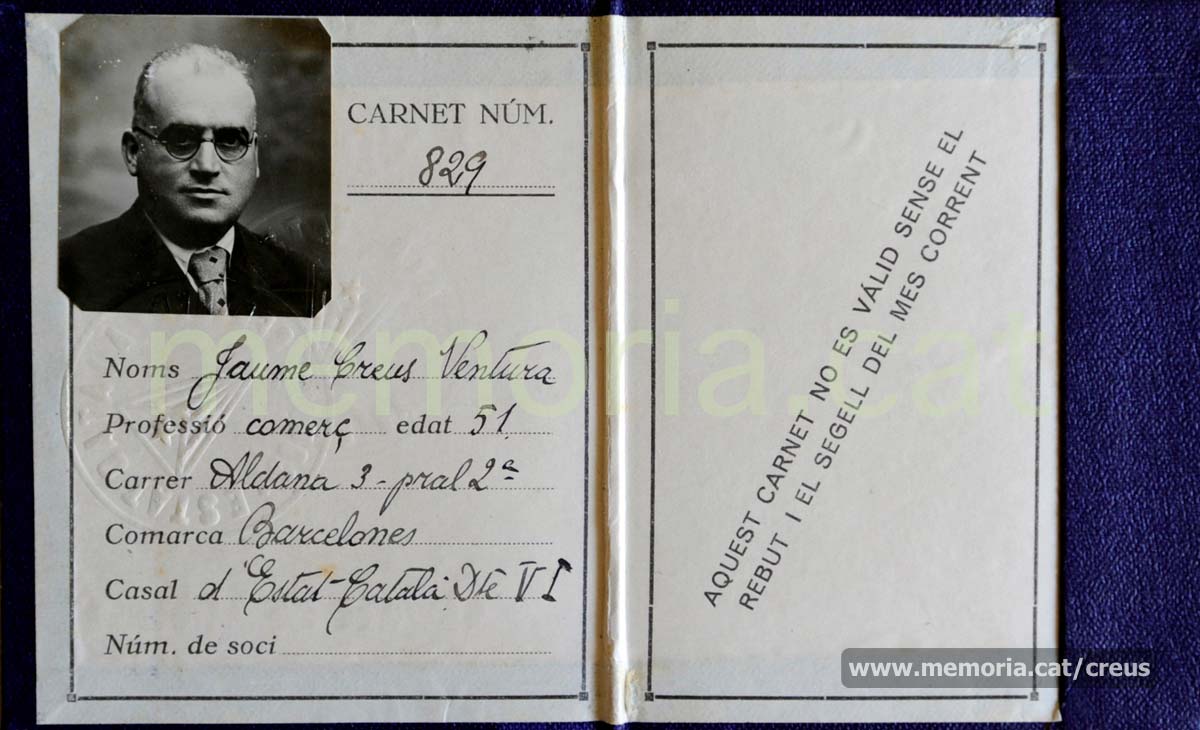 CARNET NÚM.
829
Noms Jaume Creus Ventura
Professió comerç edat 51.
Carrer Aldana 3 - pral 2ª
Comarca Barcelones
Casal d'Estat-Català Dte VI
Núm. de soci
AQUEST CARNET NO ES VÁLID SENSE EL
REBUT I EL SEGELL DEL MES CORRENT
memoria.cat
www.memoria.cat/creus